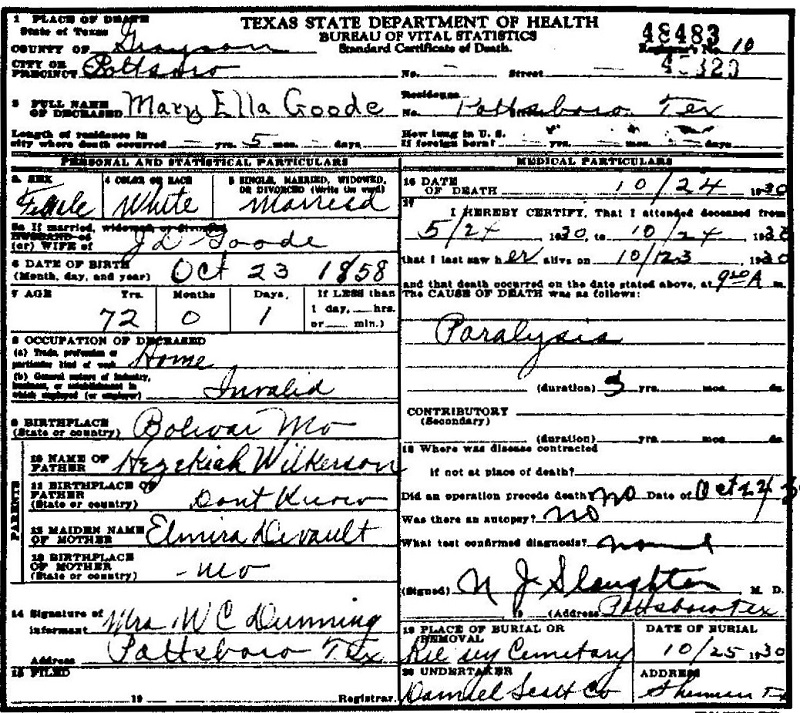 TEXAS STATE DEPARTMENT OF HEALTH
BUREAU OF VITAL STATISTICS
Standard Certificate of Death.
48483
Registrar's No. 10
1 PLACE OF DEATH
State of Texas
COUNTY OF Grayson
CITY OR
PRECINCT Pottsboro No. — Street —
2 FULL NAME
OF DECEASED Mary Ella Goode
Residence
No. Pottsboro Tex
Length of residence in
city where death occurred — yrs. 5 mos. — days
How long in U. S.
if foreign born? yrs. mos. days
PERSONAL AND STATISTICAL PARTICULARS
3 SEX
Female
4 COLOR OR RACE
White
5 SINGLE, MARRIED, WIDOWED,
OR DIVORCED (Write the word)
Married
5a If married, widowed or divorced
HUSBAND of
(or) WIFE of J D Goode
6 DATE OF BIRTH
(Month, day, and year) Oct 23 1858
7 AGE Yrs. Months Days
72 0 1
If LESS than
1 day, hrs.
or min.)
8 OCCUPATION OF DECEASED
(a) Trade, profession or
particular kind of work Home
(b) General nature of industry,
business, or establishment in
which employed (or employer) Invalid
9 BIRTHPLACE
(State or country) Bolivar Mo
PARENTS
10 NAME OF
FATHER Hezekiah Wilkerson
11 BIRTHPLACE OF
FATHER
(State or country) Dont Know
12 MAIDEN NAME
OF MOTHER Elmira Devault
13 BIRTHPLACE
OF MOTHER
(State or country) - Mo
14 Signature of
informant Mrs W C Dunning
Address Pottsboro Tex
15 FILED
19 Registrar.
MEDICAL PARTICULARS
16 DATE
OF DEATH 10/24 1930
17
I HEREBY CERTIFY, That I attended deceased from
5/24 1930, to 10/24 1930
that I last saw her alive on 10/23 1930
and that death occurred on the date stated above, at 9 20 A m.
The CAUSE OF DEATH was as follows:
Paralysis
(duration) yrs. mos. ds.
CONTRIBUTORY
(Secondary)
(duration) yrs. mos. ds.
18 Where was disease contracted
if not at place of death?
Did an operation precede death no Date of Oct 24
Was there an autopsy? no
What test confirmed diagnosis?
(Signed) N J Slaughter M. D.
19 (Address Pottsboro Tex
19 PLACE OF BURIAL OR
REMOVAL
Cemetary
DATE OF BURIAL
10/25 1930
20 UNDERTAKER
Dannel Scott Co
ADDRESS
Sherman Tx